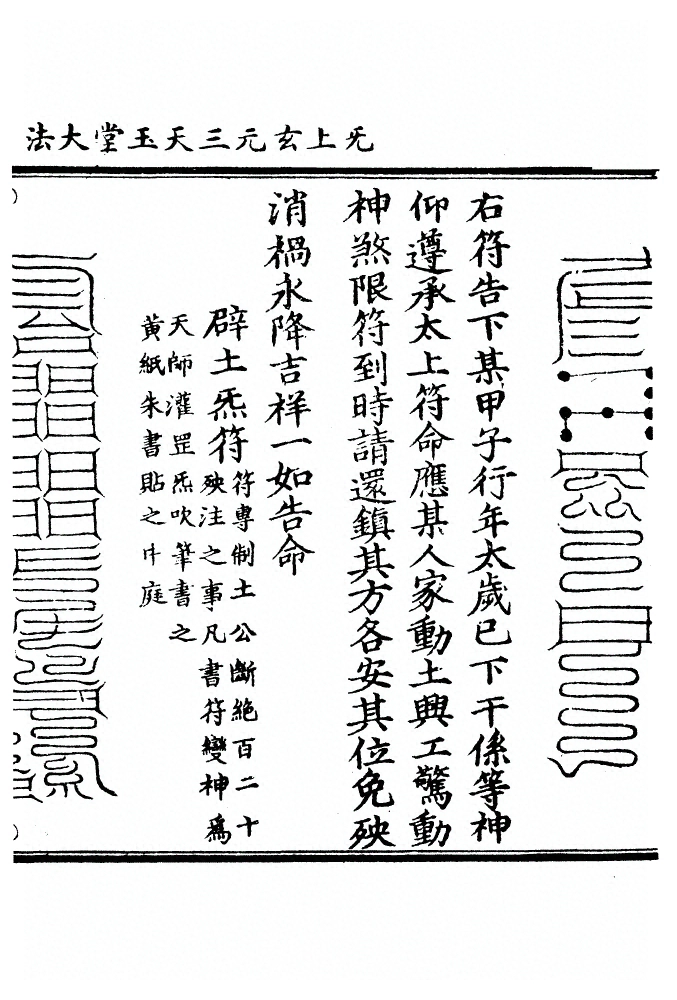 无上玄元三天玉堂大法
右符告下某甲子行年太歲已下干係等神
仰遵承太上符命應某人家動土興工驚動
神煞限符到時請還鎮其方各安其位免殃
消禍永降吉祥一如告命
辟土炁符
符專制土公斷絕百二十
殃注之事凡書符變神爲
天師灌罡炁吹筆書之
黃紙朱書貼之中庭